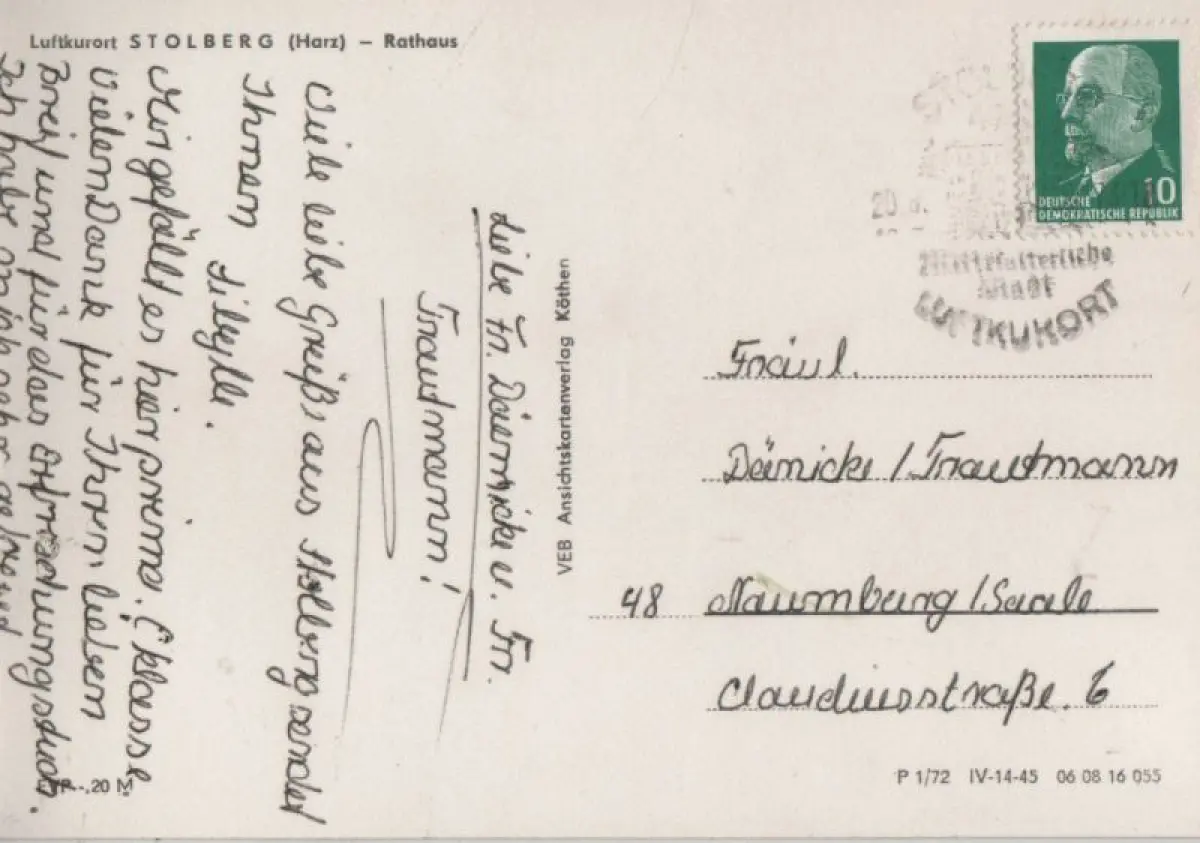 Luftkurort STOLBERG (Harz) – Rathaus
Liebe Fr. Däumicke u. Frl.
Trautmann!
Viele liebe Grüße aus Stolberg sendet
Ihnen Sibylle.
Mir gefällt es hier prima. (Klasse
Vielen Dank für Ihren lieben
Brief und für das
Ich habe
VEB Ansichtskartenverlag Köthen
DEUTSCHE
DEMOKRATISCHE REPUBLIK
10
20
Mittelalterliche
Stadt
LUFTKURORT
Fräul.
Dänicke / Trautmann
48 Naumburg/Saale
Claudiusstraße. 6
-,20 M
P 1/72 IV-14-45 06 08 16 055